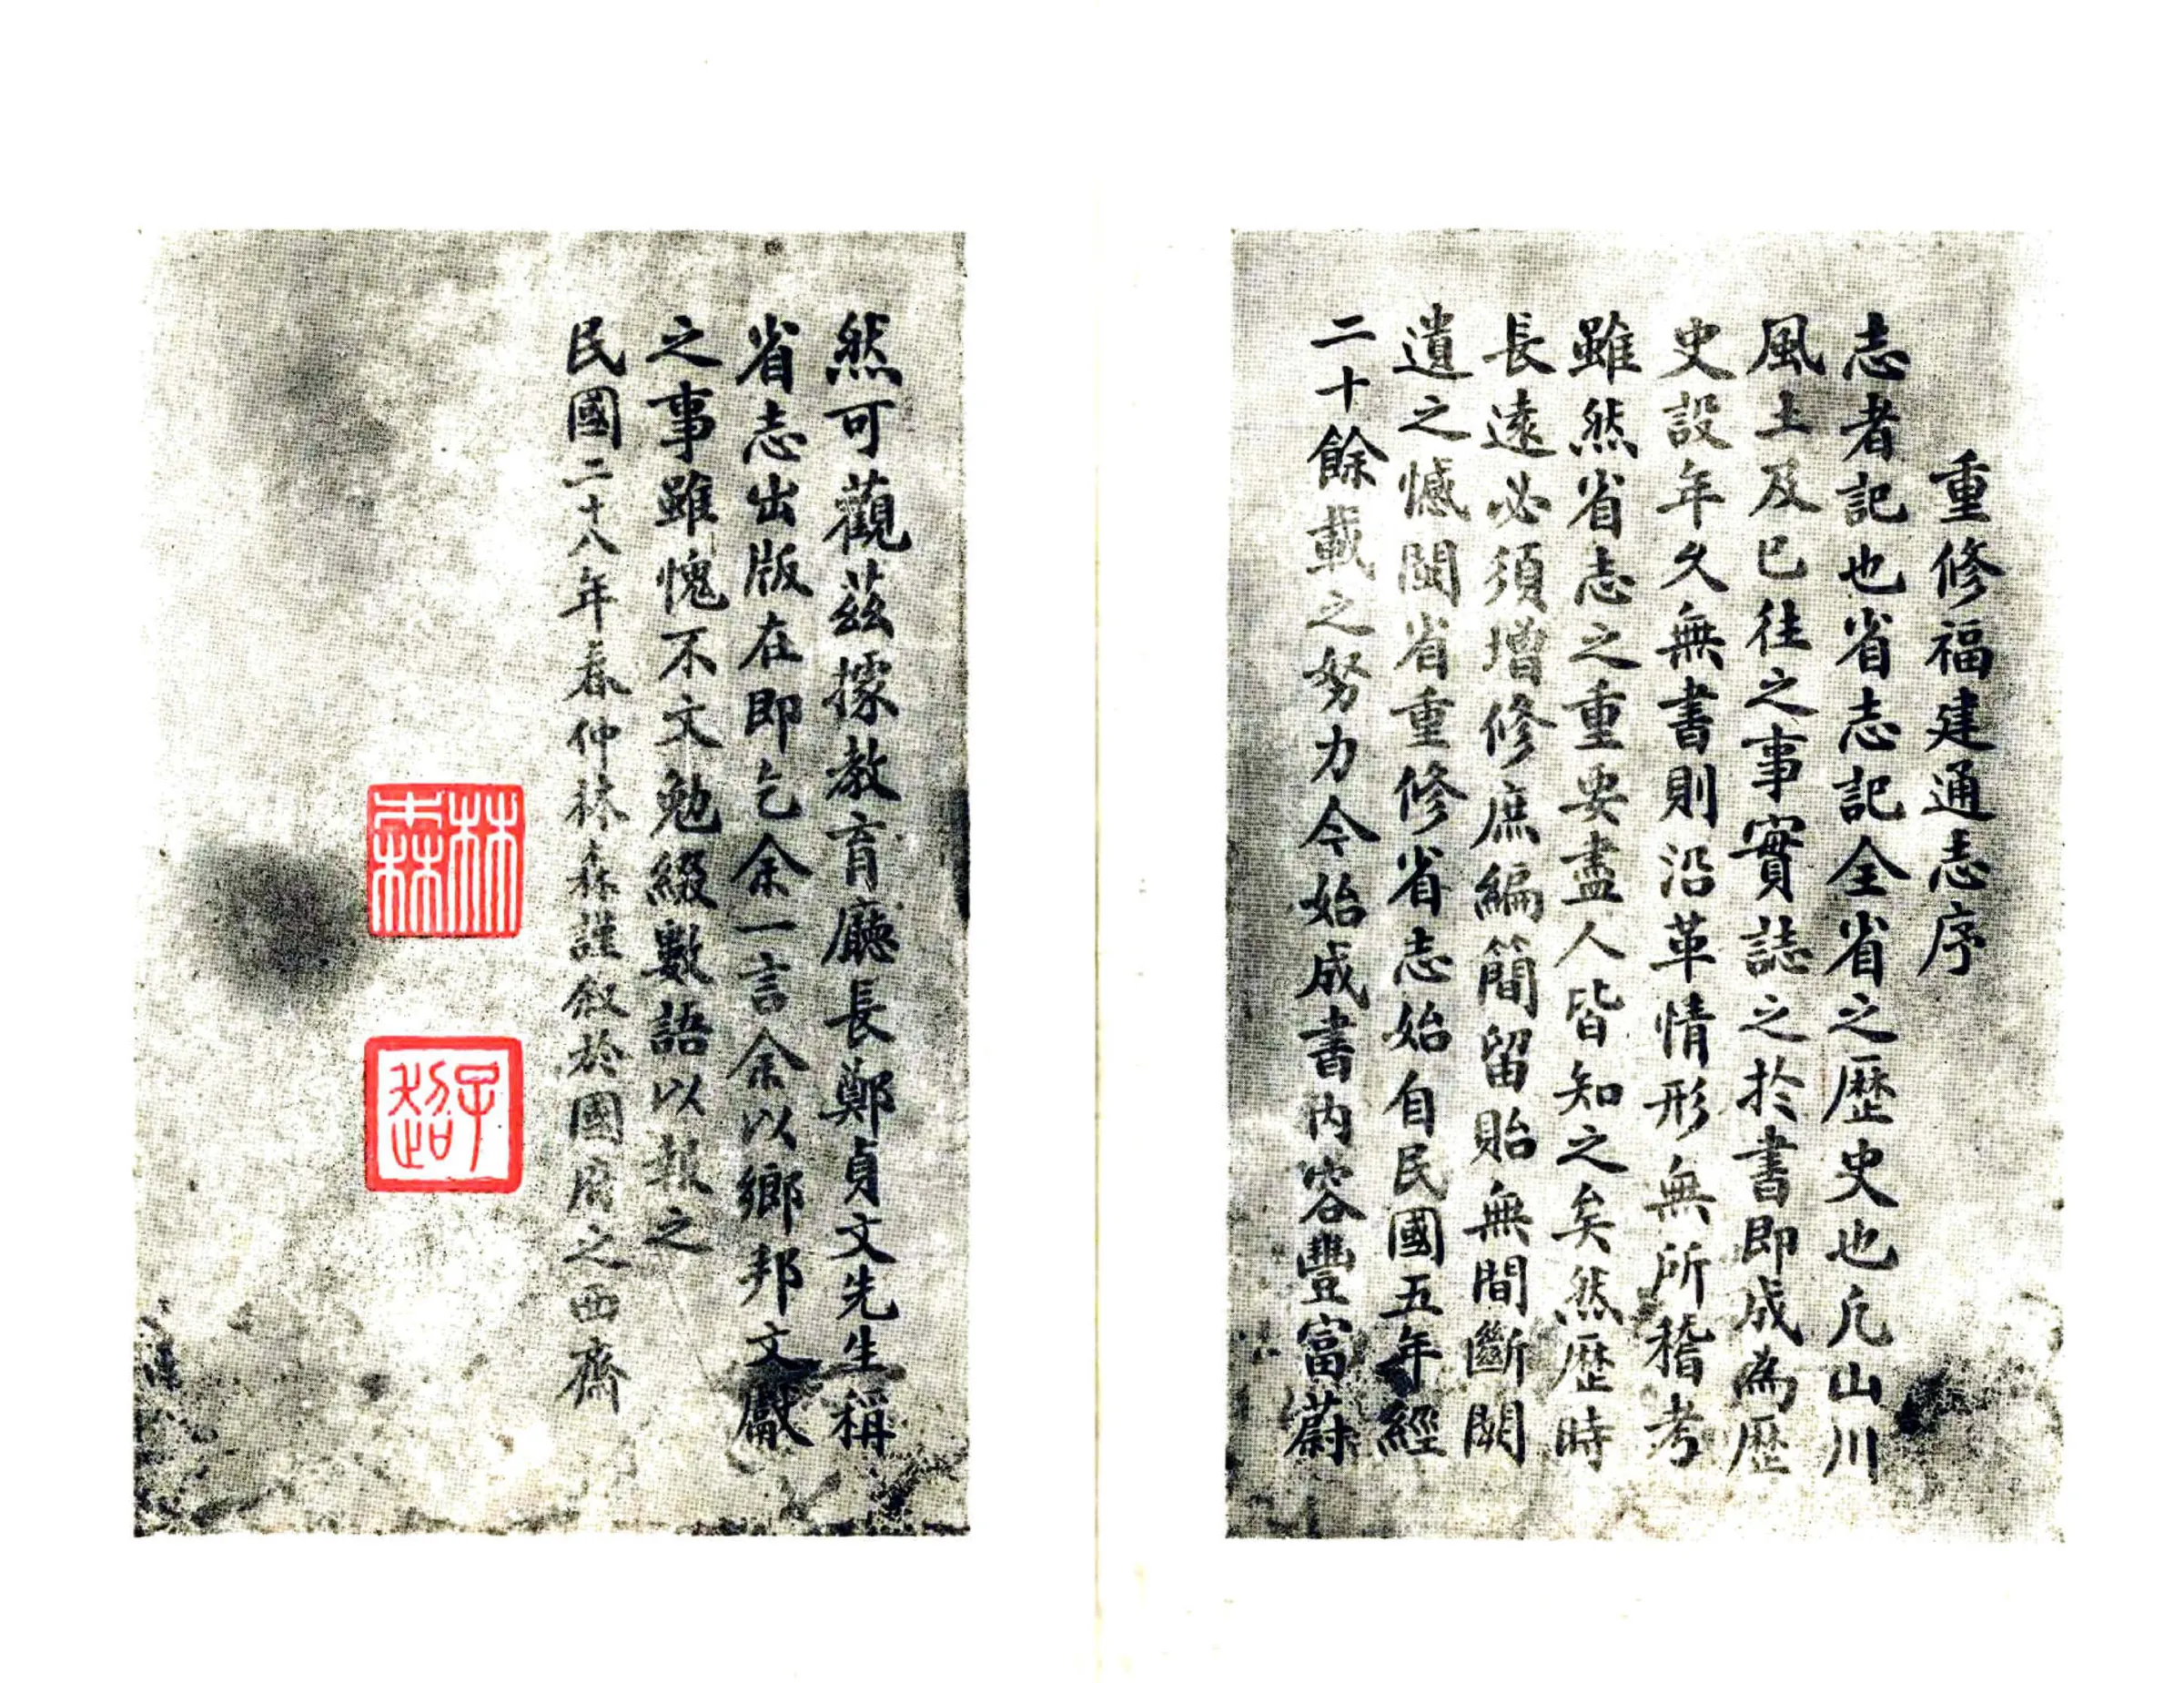 重修福建通志序
志者記也省志記全省之歷史也凡山川
風土及已往之事實誌之於書即成為歷
史設年久無書則沿革情形無所稽考
雖然省志之重要盡人皆知之矣然歷時
長遠必須增修庶編簡留貽無間斷闕
遺之憾閩省重修省志始自民國五年經
二十餘載之努力今始成書內容豐富蔚
然可觀茲據教育廳長鄭貞文先生稱
省志出版在即乞余一言余以鄉邦文獻
之事雖愧不文勉綴數語以報之
民國二十八年春仲林森謹敘於國府之西齋
林森
子超